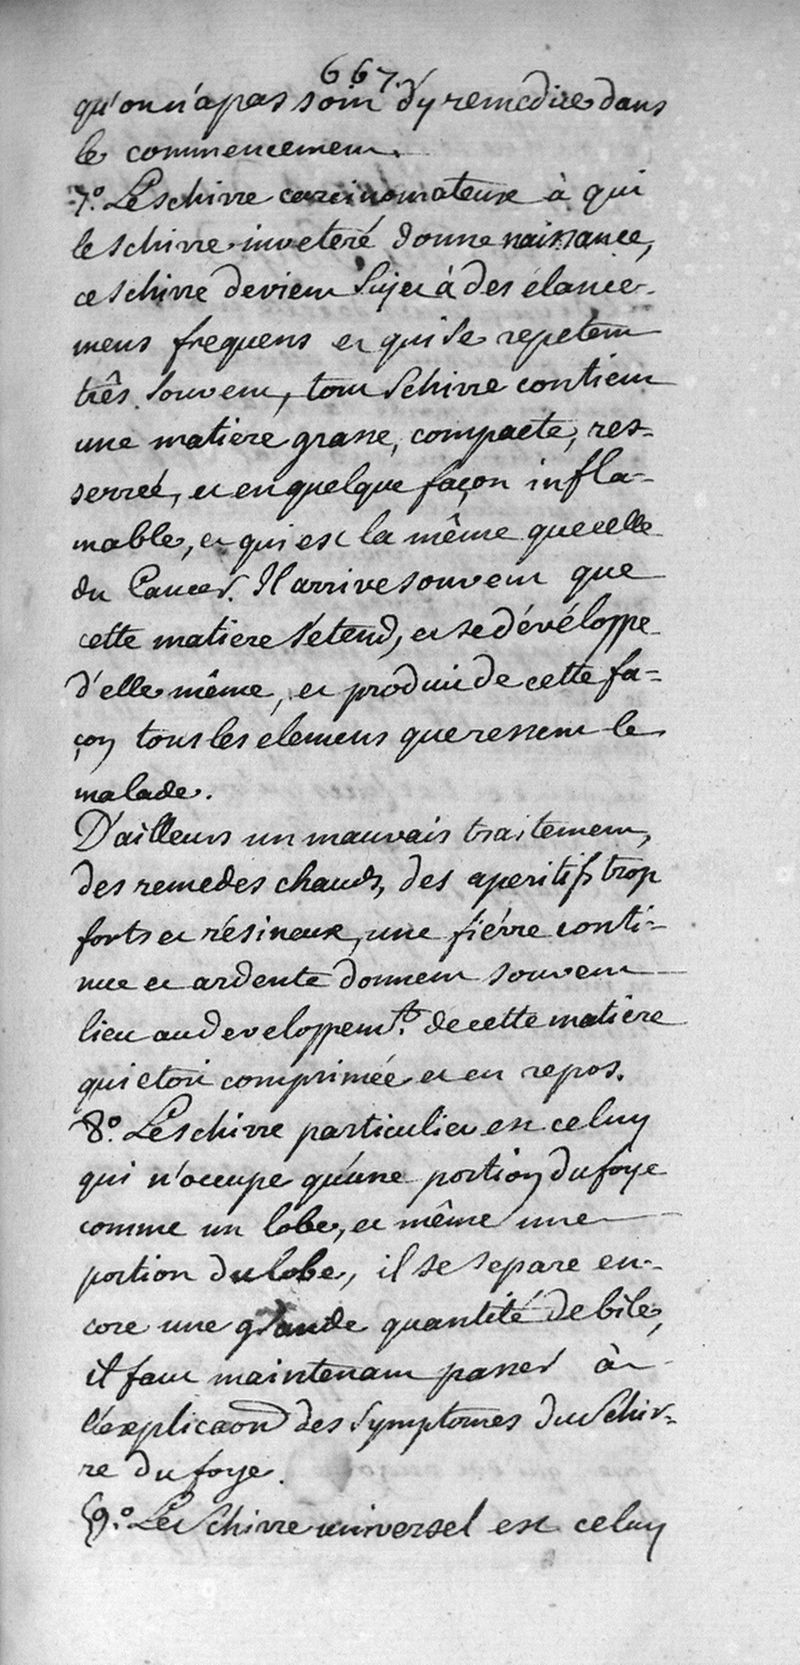 667.
qu'on n'a pas soin d'y remedier dans
le commencement.
7.° Le schirre carcinomateux à qui
le schirre inveteré donne naissance,
ce schirre devient sujet à des élance-
mens frequens et qui se repetent
très souvent, tout schirre contient
une matière grasse, compacte, res-
serreé, et en quelque façon infla-
mable, et qui est la même que celle
du Cancer. Il arrive souvent que
cette matiere s'étend, et se dévéloppe
d'elle même, et produit de cette fa-
çon tous les élemens que ressent le
malade.
D'ailleurs un mauvais traitement,
des remedes chauds, des aperitifs trop
forts et résineux, une fiévre conti-
nue et ardente donnent souvent
lieu au developpem.t de cette matiere
qui etoit comprimée et en repos.
8.° Le schirre particulier est celuy
qui n'occupe qu'une portion du foye
comme un lobe, et même une
portion du lobe, il se separe en-
core une grande quantité de bile,
il faut maintenant passer à
l'explicaon des symptomes du schir-
re du foye.
9.° Le schirre universel est celuy